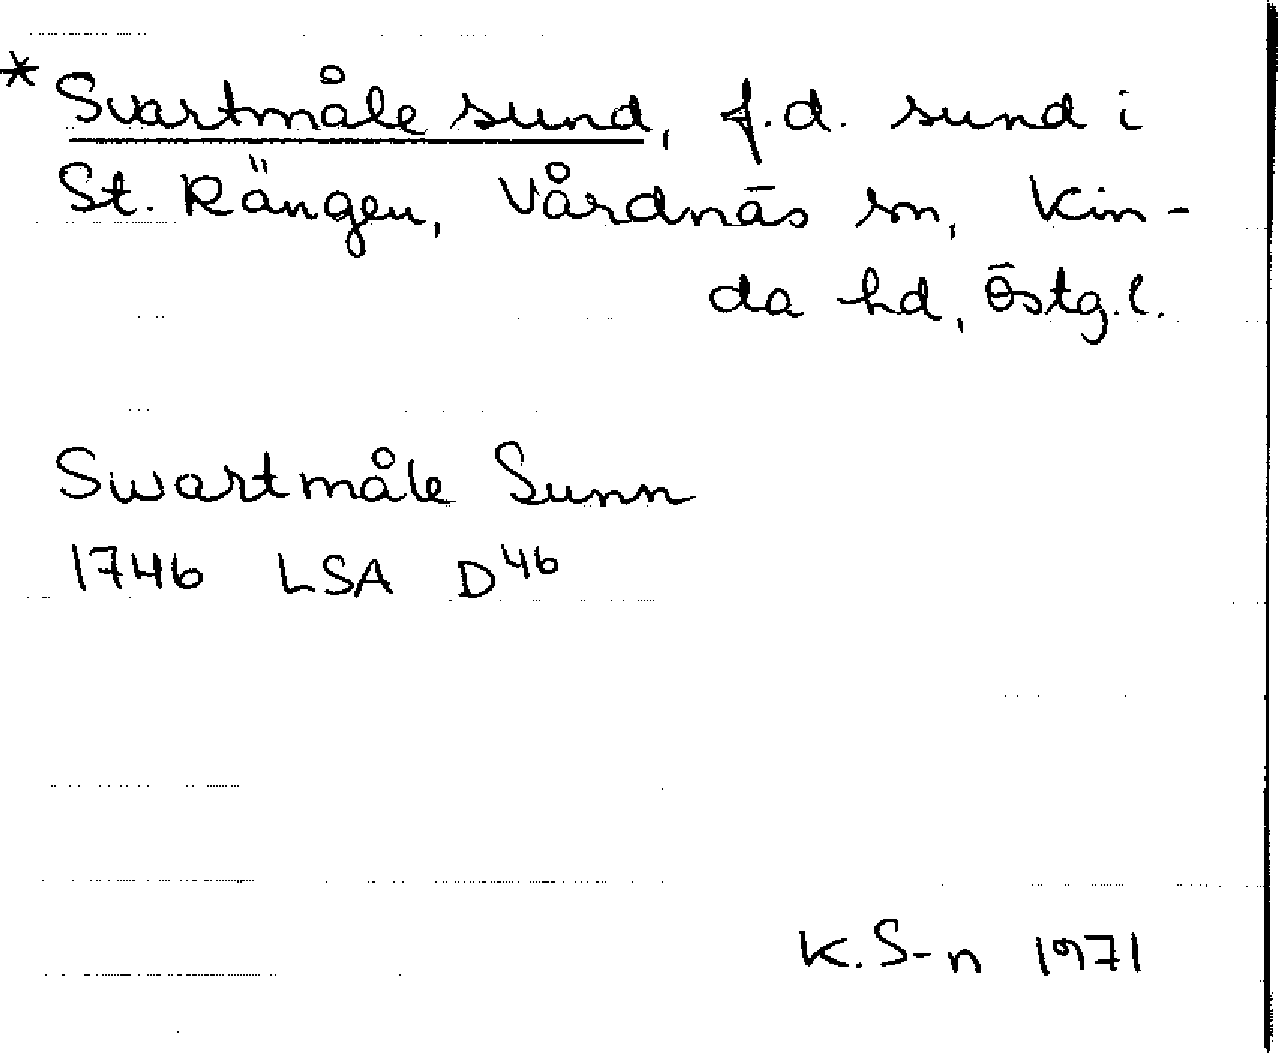 * Svartmåle sund, f.d. sund i
St. Rängen, Vårdnäs sn, Kin-
da hd, Östg.l.
Swartmåle Sunn
1746 LSA D46
K.S-n 1971